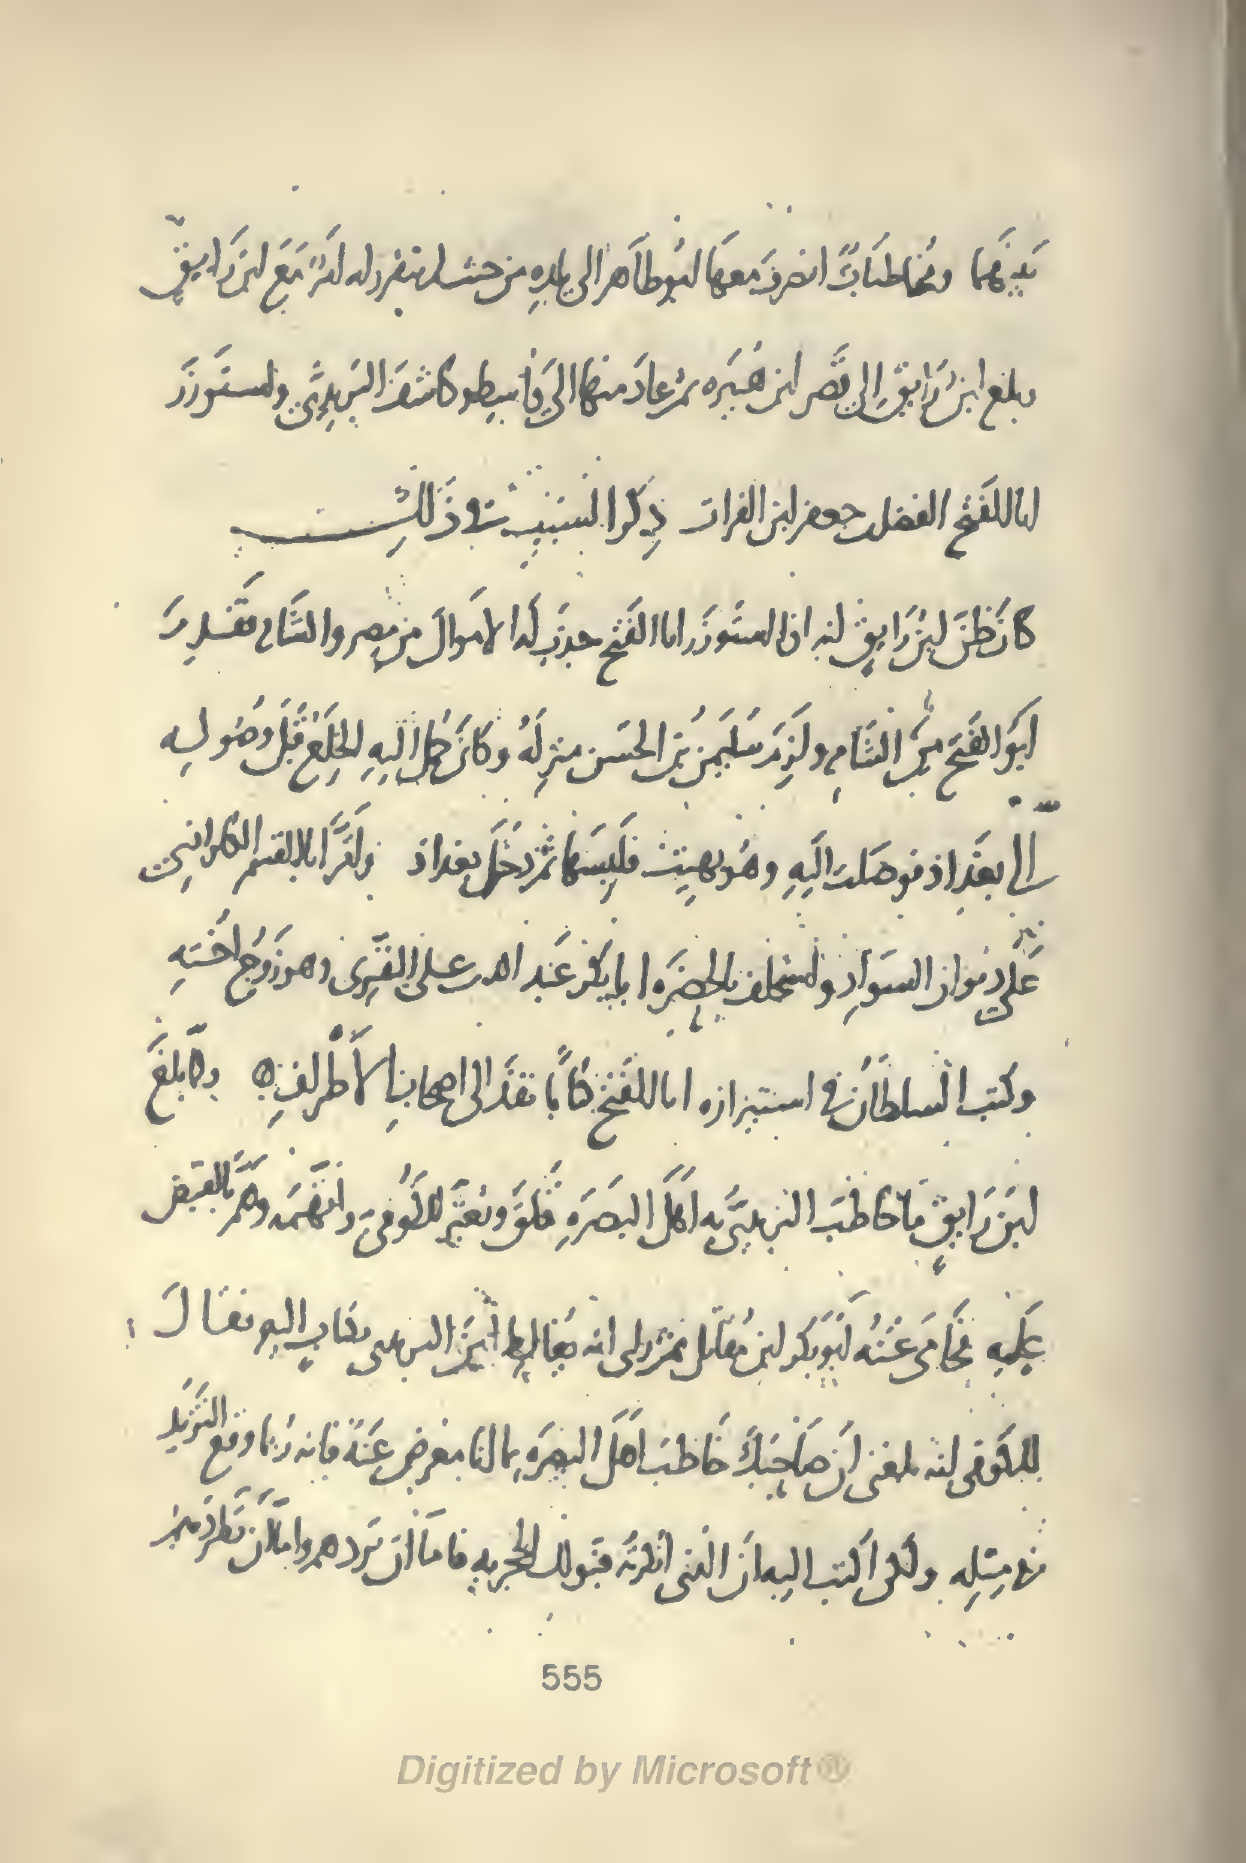 بينهما ومخاطبات انصرف معها ابو طاهر الى بلده من حيث لم يتقرر له امر مع ابن رايق
وبلغ ابن رايق الى قصر ابن هبيره ثم عاد منها الى واسط وكاشف البريدي واستوزر
ابا الفتح الفضل بن جعفر ابن الفرات ذكر السبب في ذلك
كان ظن ابن رايق انه اذا استوزر ابا الفتح جذب له الاموال من مصر والشام فقدم
ابو الفتح من الشام ولزم سليمن بن الحسن منزله وكان حمل اليه الخلع قبل وصوله
الى بغداذ فوصلت اليه وهو بهيت فلبسها ثم دخل بغداذ واقر ابا القسم الكلواذي
على ديوان السواد واستخلف بالحضره ابا بكر عبد الله بن علي النفري وهو زوج اخته
وكتب السلطان في استيزاره ابا الفتح كتابا نفذ الى اصحاب الاطراف ولما بلغ
ابن رايق ما خاطب البريدي به اهل البصره قلق وتغير للكوفي واتهمه وهم بالقبض
عليه فحامى عنه ابو بكر ابن مقاتل ثم راى انه يغالط ابن البريدي بكتاب اليه فقال
للكوفي انه بلغني ان صاحبك خاطب اهل البصره بما لنا معرض عنه فانه ربما وقع التزيد
في مثله ولكن اكتب اليه ان الذي انكرته قبولك الحجريه فاما ان تردهم واما ان تطردهم
555
Digitized by Microsoft®